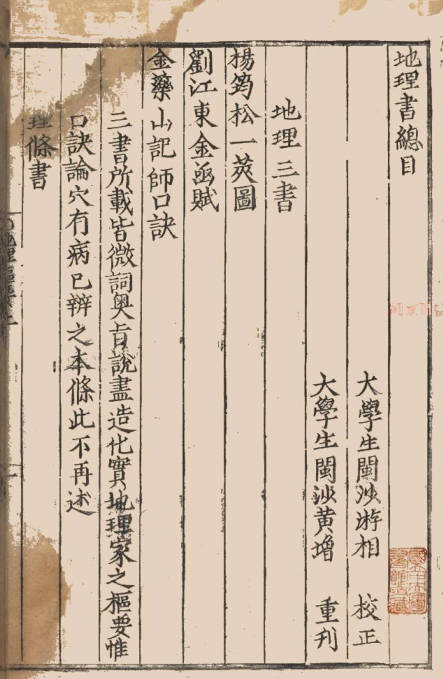 地理書總目
大學生閩沙游相 校正
大學生閩沙黄增 重刋
地理三書
楊筠松一莢圖
劉江東金函賦
金藥山記師口訣
三書所載皆微詞奥旨說盡造化實地理家之樞要惟
口訣論穴有病已辯之本條此不再述
理條書